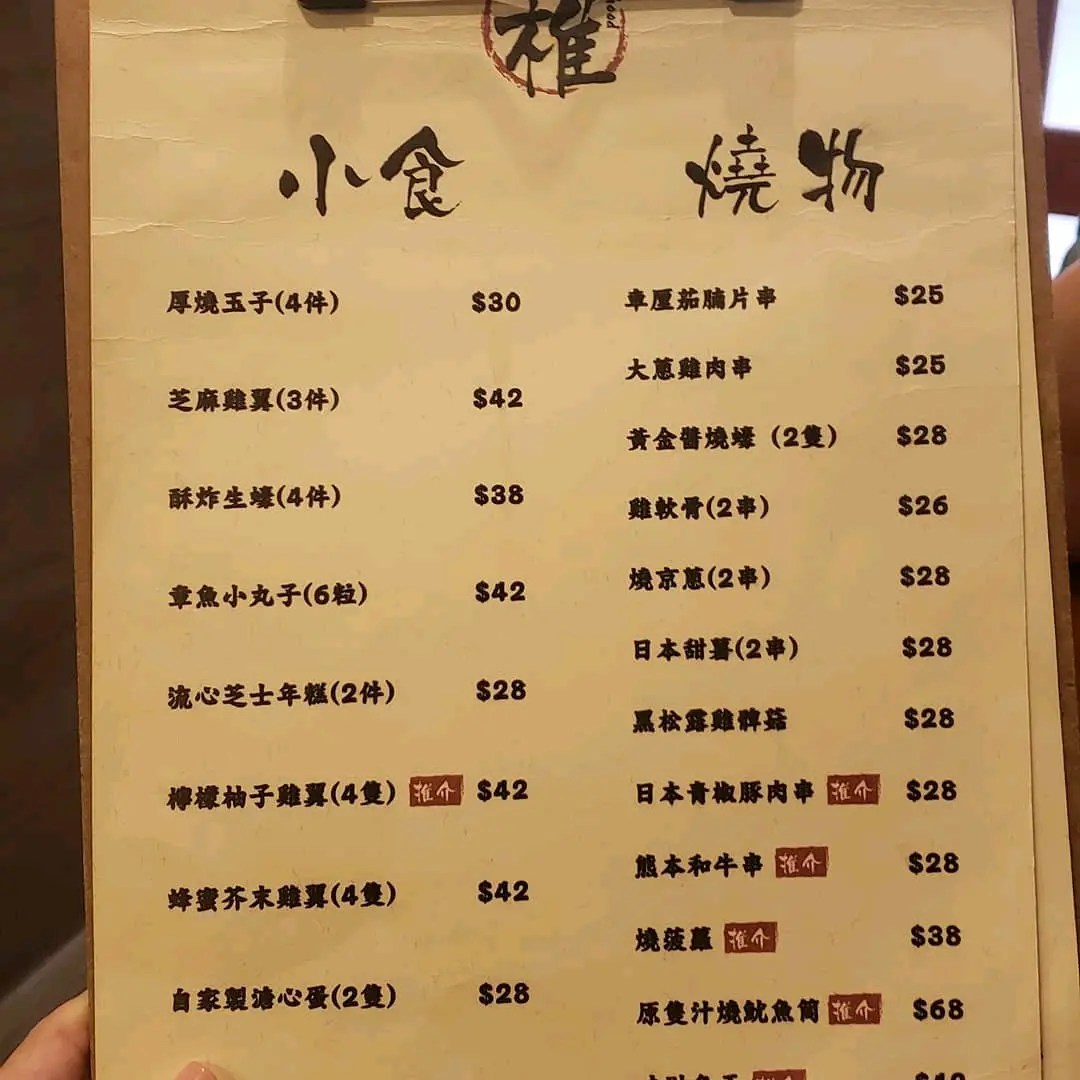 小食
厚燒玉子(4件) $30
芝麻雞翼(3件) $42
酥炸生蠔(4件) $38
章魚小丸子(6粒) $42
流心芝士年糕(2件) $28
檸檬柚子雞翼(4隻) 推介 $42
蜂蜜芥末雞翼(4隻) $42
自家製溏心蛋(2隻) $28
燒物
車厘茄腩片串 $25
大蔥雞肉串 $25
黃金醬燒蠔（2隻） $28
雞軟骨(2串) $26
燒京蔥(2串) $28
日本甜薯(2串) $28
黑松露雞髀菇 $28
日本青椒豚肉串 推介 $28
熊本和牛串 推介 $28
燒菠蘿 推介 $38
原隻汁燒魷魚筒 推介 $68